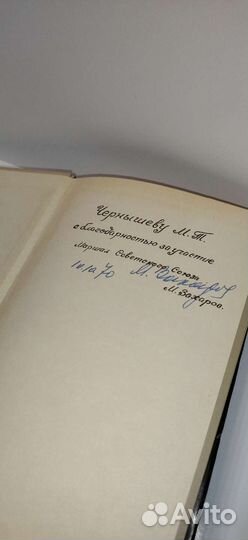 Чернышеву М.Т.
с благодарностью за участие
Маршал Советского Союза
10/IX 70 М. Захаров
М. Захаров.
Avito